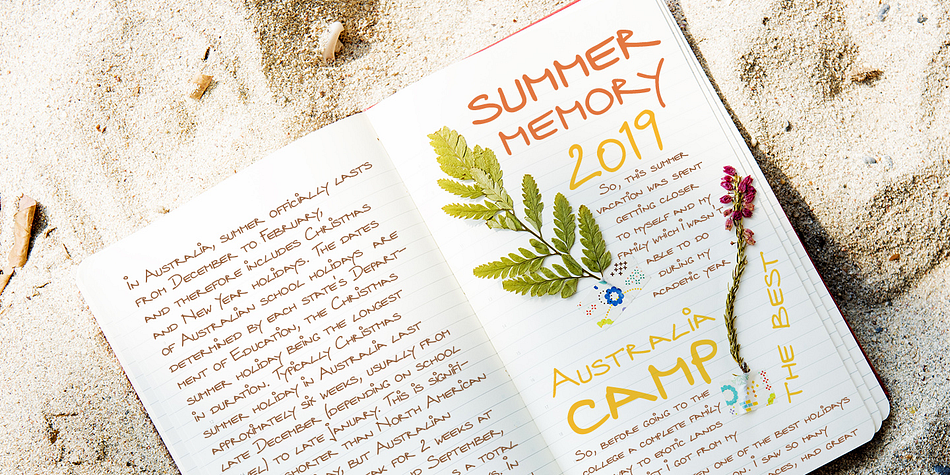 in Australia, summer officially lasts
from December to February,
and therefore includes Christmas
and New Year holidays. The dates
of Australian school holidays are
determined by each state's Depart-
ment of Education, the Christmas
summer holiday being the longest
in duration. Typically Christmas
summer holiday in Australia last
approximately six weeks, usually from
late December (depending on school
level) to late January. This is signifi-
shorter than North American
but Australian
break for 2 weeks at
and September,
is a total
in
SUMMER
MEMORY
2019
So, this summer
vacation was spent
getting closer
to myself and my
family which I wasn't
able to do
during my
academic year
Australia
CAMP
THE BEST
So, before going to the
college a complete family
way to exotic lands
I got from my
one of the best holidays
I saw so many
places, had great